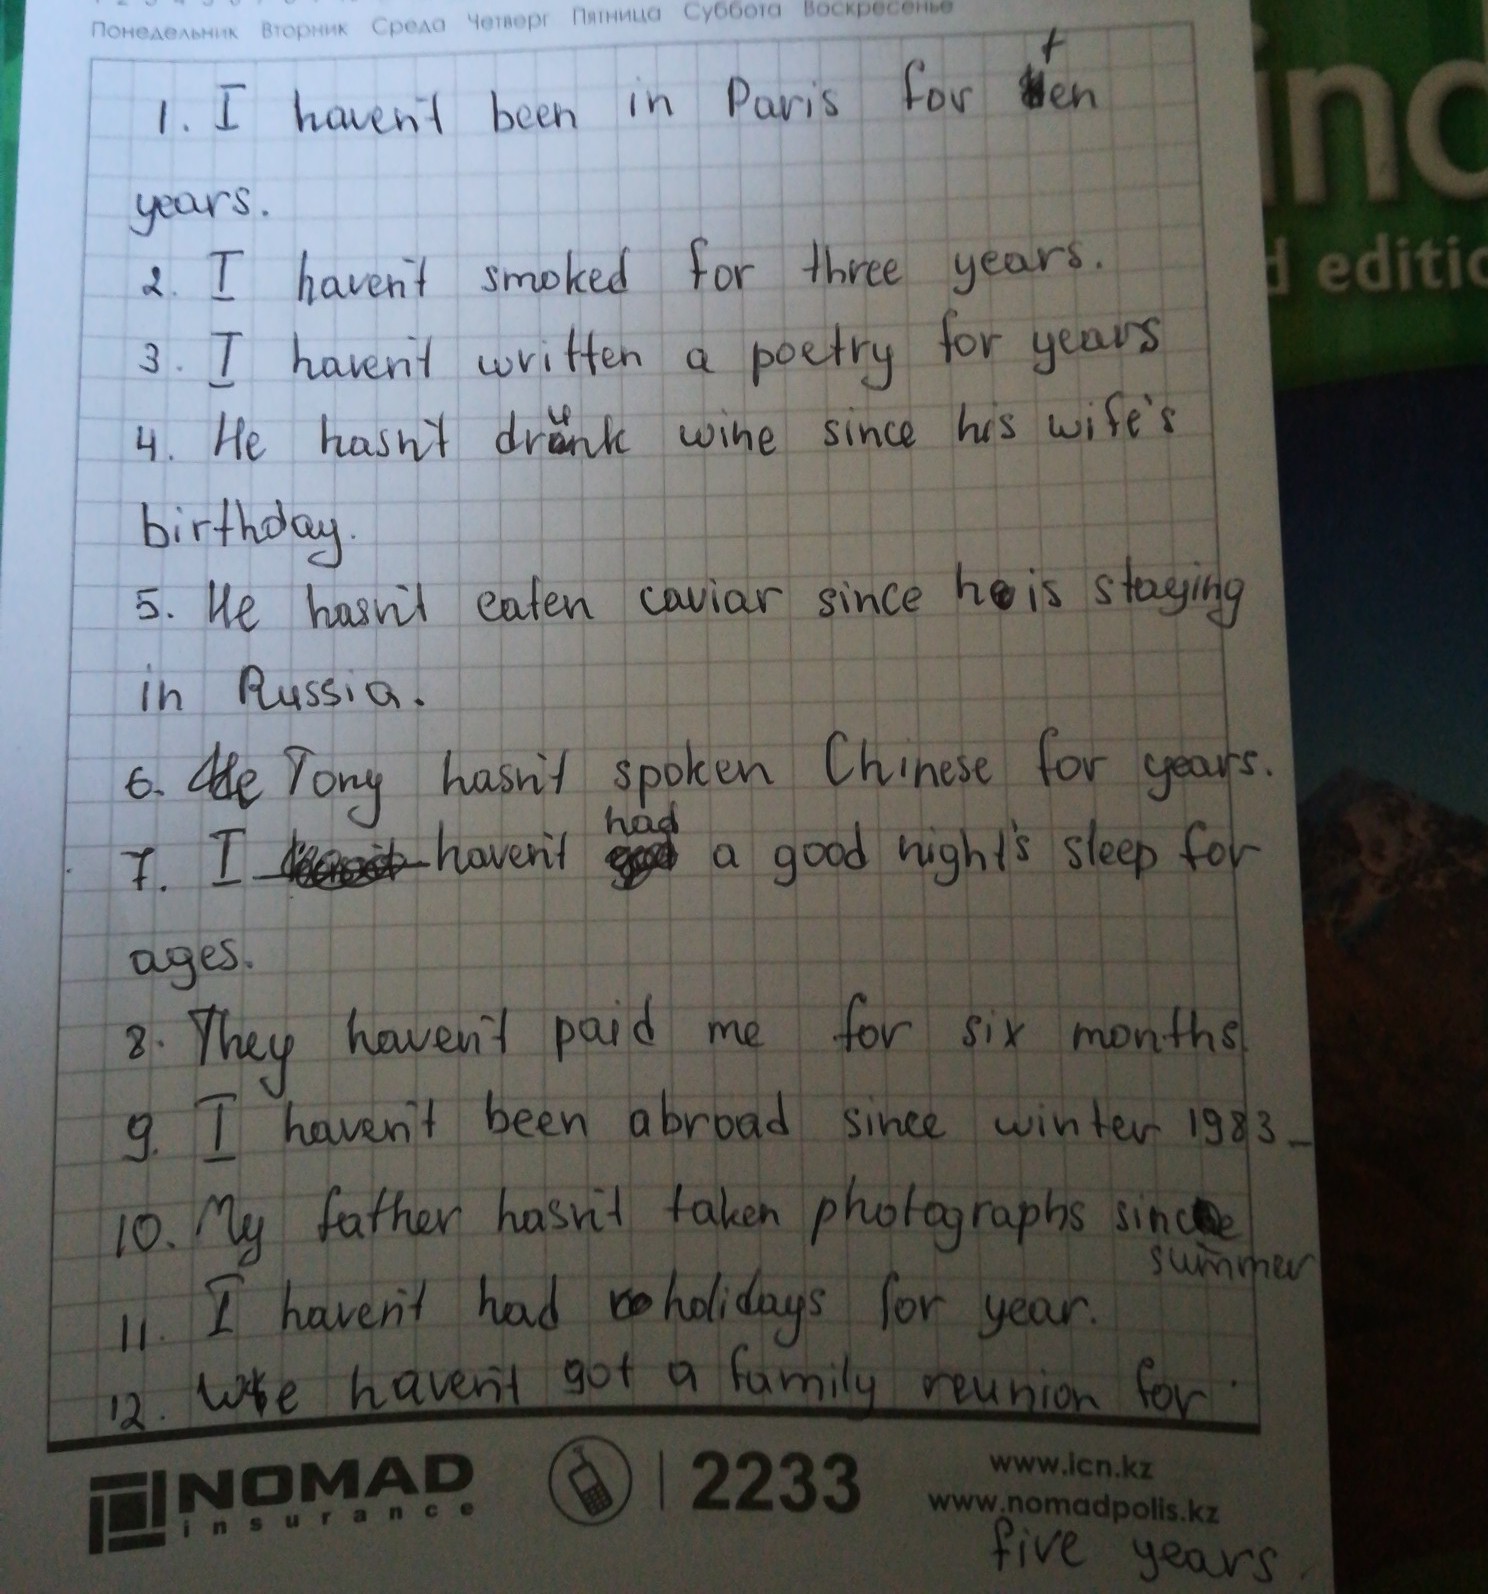 Понедельник Вторник Среда Четверг Пятница Суббота Воскресенье
1. I haven't been in Paris for ten
years.
2. I haven't smoked for three years.
3. I haven't written a poetry for years
4. He hasn't drunk wine since his wife's
birthday.
5. He hasn't eaten caviar since he is staying
in Russia.
6. He Tony hasn't spoken Chinese for years.
7. I haven't had a good night's sleep for
ages.
8. They haven't paid me for six months
9. I haven't been abroad since winter 1983
10. My father hasn't taken photographs since
summer
11. I haven't had holidays for year.
12. We haven't got a family reunion for
five years
NOMAD
insurance
2233
www.icn.kz
www.nomadpolis.kz
editio